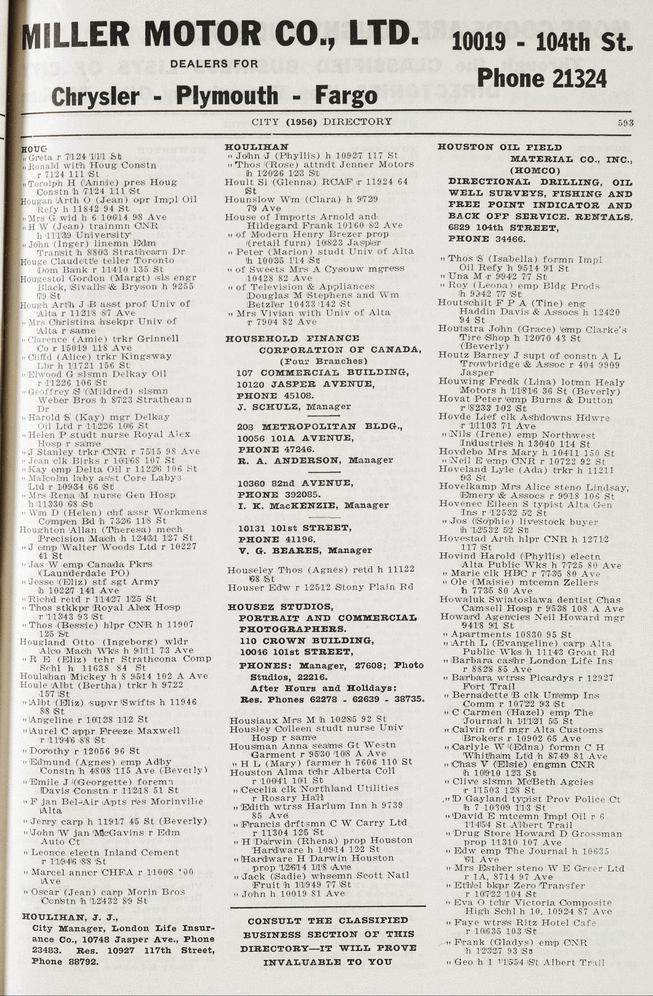 MILLER MOTOR CO., LTD.
DEALERS FOR
Chrysler - Plymouth - Fargo
10019 - 104th St.
Phone 21324
CITY (1956) DIRECTORY 593
HOUG
" Greta r 7124 111 St
" Ronald with Houg Constn
r 7124 111 St
" Torolph H (Annie) pres Houg
Constn h 7124 111 St
Hougan Arth O (Jean) opr Impl Oil
Refy h 11842 94 St
" Mrs G wid h 6 10614 98 Ave
" H W (Jean) trainmn CNR
h 11139 University
" John (Inger) linemn Edm
Transit h 8803 Strathearn Dr
Houge Claudette teller Toronto
Dom Bank r 11410 135 St
Hougestol Gordon (Margt) sls engr
Black, Sivalls & Bryson h 9255
79 St
Hough Arth J B asst prof Univ of
Alta r 11218 87 Ave
" Mrs Christina hsekpr Univ of
Alta r same
" Clarence (Amie) trkr Grinnell
Co r 15019 118 Ave
" Cliffd (Alice) trkr Kingsway
Lbr h 11721 156 St
" Elwood G slsmn Delkay Oil
r 11226 106 St
" Geoffrey S (Mildred) slsmn
Weber Bros h 8723 Strathearn
Dr
" Harold S (Kay) mgr Delkay
Oil Ltd r 11226 106 St
" Helen P studt nurse Royal Alex
Hosp r same
" J Stanley trkr CNR r 7515 98 Ave
" Jean clk Birks r 10168 107 St
" Kay emp Delta Oil r 11226 106 St
" Malcolm laby asst Core Labys
Ltd r 10934 66 St
" Mrs Rena M nurse Gen Hosp
h 11330 68 St
" Wm D (Helen) chf assr Workmens
Compen Bd h 7326 118 St
Houghton Allan (Theresa) mech
Precision Mach h 12431 127 St
" J emp Walter Woods Ltd r 10227
41 St
" Jas W emp Canada Pkrs
(Launderdale PO)
" Jesse (Eliz) stf sgt Army
h 10227 141 Ave
" Richd retd r 11427 125 St
" Thos stkkpr Royal Alex Hosp
r 11343 93 St
" Thos (Bessie) hlpr CNR h 11907
125 St
Hougland Otto (Ingeborg) wldr
Alco Mach Wks h 9111 73 Ave
" R E (Eliz) tchr Strathcona Comp
Schl h 11638 84 St
Houlahan Mickey h 8 9514 102 A Ave
Houle Albt (Bertha) trkr h 9722
157 St
" Albt (Eliz) supvr Swifts h 11946
88 St
" Angeline r 10128 112 St
" Aurel C appr Freeze Maxwell
r 11946 88 St
" Dorothy r 12056 96 St
" Edmund (Agnes) emp Adby
Constn h 4808 115 Ave (Beverly)
" Emile J (Georgette) foremn
Davis Constn r 11248 51 St
" F jan Bel-Air Apts res Morinville
Alta
" Jerry carp h 11917 45 St (Beverly)
" John W jan McGavins r Edm
Auto Ct
" Leonce electn Inland Cement
r 11946 88 St
" Marcel anncr CHFA r 11008
Ave
" Oscar (Jean) carp Morin Bros
Constn h 12432 89 St
HOULIHAN, J. J.,
City Manager, London Life Insur-
ance Co., 10748 Jasper Ave., Phone
23483. Res. 10927 117th Street,
Phone 88792.
HOULIHAN
" John J (Phyllis) h 10927 117 St
" Thos (Rose) attndt Jenner Motors
h 12026 123 St
Hoult Si (Glenna) RCAF r 11924 64
St
Hounslow Wm (Clara) h 9729
79 Ave
House of Imports Arnold and
Hildegard Frank 10160 82 Ave
" of Modern Henry Brezer prop
(retail furn) 10823 Jasper
" Peter (Marion) studt Univ of Alta
h 10035 114 St
" of Sweets Mrs A Cysouw mgress
10428 82 Ave
" of Television & Appliances
Douglas M Stephens and Wm
Betzler 10433 142 St
" Mrs Vivian with Univ of Alta
r 7904 82 Ave
HOUSEHOLD FINANCE
CORPORATION OF CANADA,
(Four Branches)
107 COMMERCIAL BUILDING,
10120 JASPER AVENUE,
PHONE 45108.
J. SCHULZ, Manager
208 METROPOLITAN BLDG.,
10056 101A AVENUE,
PHONE 47246.
R. A. ANDERSON, Manager
10360 82nd AVENUE,
PHONE 392085.
I. K. MacKENZIE, Manager
10131 101st STREET,
PHONE 41196.
V. G. BEARES, Manager
Houseley Thos (Agnes) retd h 11122
68 St
Houser Edw r 12512 Stony Plain Rd
HOUSEZ STUDIOS,
PORTRAIT AND COMMERCIAL
PHOTOGRAPHERS.
110 CROWN BUILDING,
10046 101st STREET,
PHONES: Manager, 27608; Photo
Studios, 22216.
After Hours and Holidays:
Res. Phones 62278 - 62639 - 38735.
Housiaux Mrs M h 10285 92 St
Housley Colleen studt nurse Univ
Hosp r same
Housman Anna seams Gt Westn
Garment r 9530 108 A Ave
" H L (Mary) farmer h 7606 110 St
Houston Alma tchr Alberta Coll
r 10041 101 St
" Cecelia clk Northland Utilities
r Rosary Hall
" Edith wtrss Harlum Inn h 9739
85 Ave
" Francis drftsmn C W Carry Ltd
r 11304 125 St
" H Darwin (Rhena) prop Houston
Hardware h 10914 122 St
" Hardware H Darwin Houston
prop 12614 118 Ave
" Jack (Sadie) whsemn Scott Natl
Fruit h 11949 77 St
" John h 10019 81 Ave
CONSULT THE CLASSIFIED
BUSINESS SECTION OF THIS
DIRECTORY—IT WILL PROVE
INVALUABLE TO YOU
HOUSTON OIL FIELD
MATERIAL CO., INC.,
(HOMCO)
DIRECTIONAL DRILLING, OIL
WELL SURVEYS, FISHING AND
FREE POINT INDICATOR AND
BACK OFF SERVICE. RENTALS.
6829 104th STREET,
PHONE 34466.
" Thos S (Isabella) formn Impl
Oil Refy h 9514 91 St
" Una M r 9942 77 St
" Roy (Leona) emp Bldg Prods
h 9942 77 St
Houtschilt F P A (Tine) eng
Haddin Davis & Assocs h 12420
94 St
Houtstra John (Grace) emp Clarke's
Tire Shop h 12070 43 St
(Beverly)
Houtz Barney J supt of constn A L
Trowbridge & Assoc r 404 9909
Jasper
Houwing Fredk (Lina) lotmn Healy
Motors h 11816 36 St (Beverly)
Hovat Peter emp Burns & Dutton
r 8233 102 St
Hovde Lief clk Ashdowns Hdwre
r 11103 71 Ave
" Nils (Irene) emp Northwest
Industries h 13040 114 St
Hovdebo Mrs Mary h 10411 150 St
" Neil E emp CNR r 10722 92 St
Hoveland Lyle (Ada) trkr h 11211
93 St
Hovelkamp Mrs Alice steno Lindsay,
Emery & Assocs r 9918 106 St
Hovenec Eileen S typist Alta Gen
Ins r 12532 52 St
" Jos (Sophie) livestock buyer
h 12532 52 St
Hovestad Arth hlpr CNR h 12712
117 St
Hovind Harold (Phyllis) electn
Alta Public Wks h 7725 80 Ave
" Marie clk HBC r 7735 80 Ave
" Ole (Maisie) mtcemn Zellers
h 7735 80 Ave
Howaluk Swiatoslawa dentist Chas
Camsell Hosp r 9538 108 A Ave
Howard Agencies Neil Howard mgr
9418 91 St
" Apartments 10830 95 St
" Arth L (Evangeline) carp Alta
Public Wks h 11143 Groat Rd
" Barbara cashr London Life Ins
r 8828 85 Ave
" Barbara wtrss Picardys r 12927
Fort Trail
" Bernadette B clk Unemp Ins
Comm r 10722 93 St
" C Carmen (Hazel) emp The
Journal h 11121 55 St
" Calvin off mgr Alta Customs
Brokers r 10902 65 Ave
" Carlyle W (Edna) formn C H
Whitham Ltd h 8749 81 Ave
" Chas V (Elsie) engmn CNR
h 10910 123 St
" Clive slsmn McBeth Agcies
r 11503 128 St
" D Gayland typist Prov Police Ct
h 7 10309 113 St
" David E mtcemn Impl Oil r 6
11454 St Albert Trail
" Drug Store Howard D Grossman
prop 11310 107 Ave
" Edw emp The Journal h 10635
61 Ave
" Mrs Esther steno W E Greer Ltd
r 1A, 8714 97 Ave
" Ethel bkpr Zero Transfer
r 10722 104 St
" Eva O tchr Victoria Composite
High Schl h 10, 10924 87 Ave
" Faye wtrss Ritz Hotel Cafe
r 10635 103 St
" Frank (Gladys) emp CNR
h 12327 93 St
" Geo h 1 11554 St Albert Trail